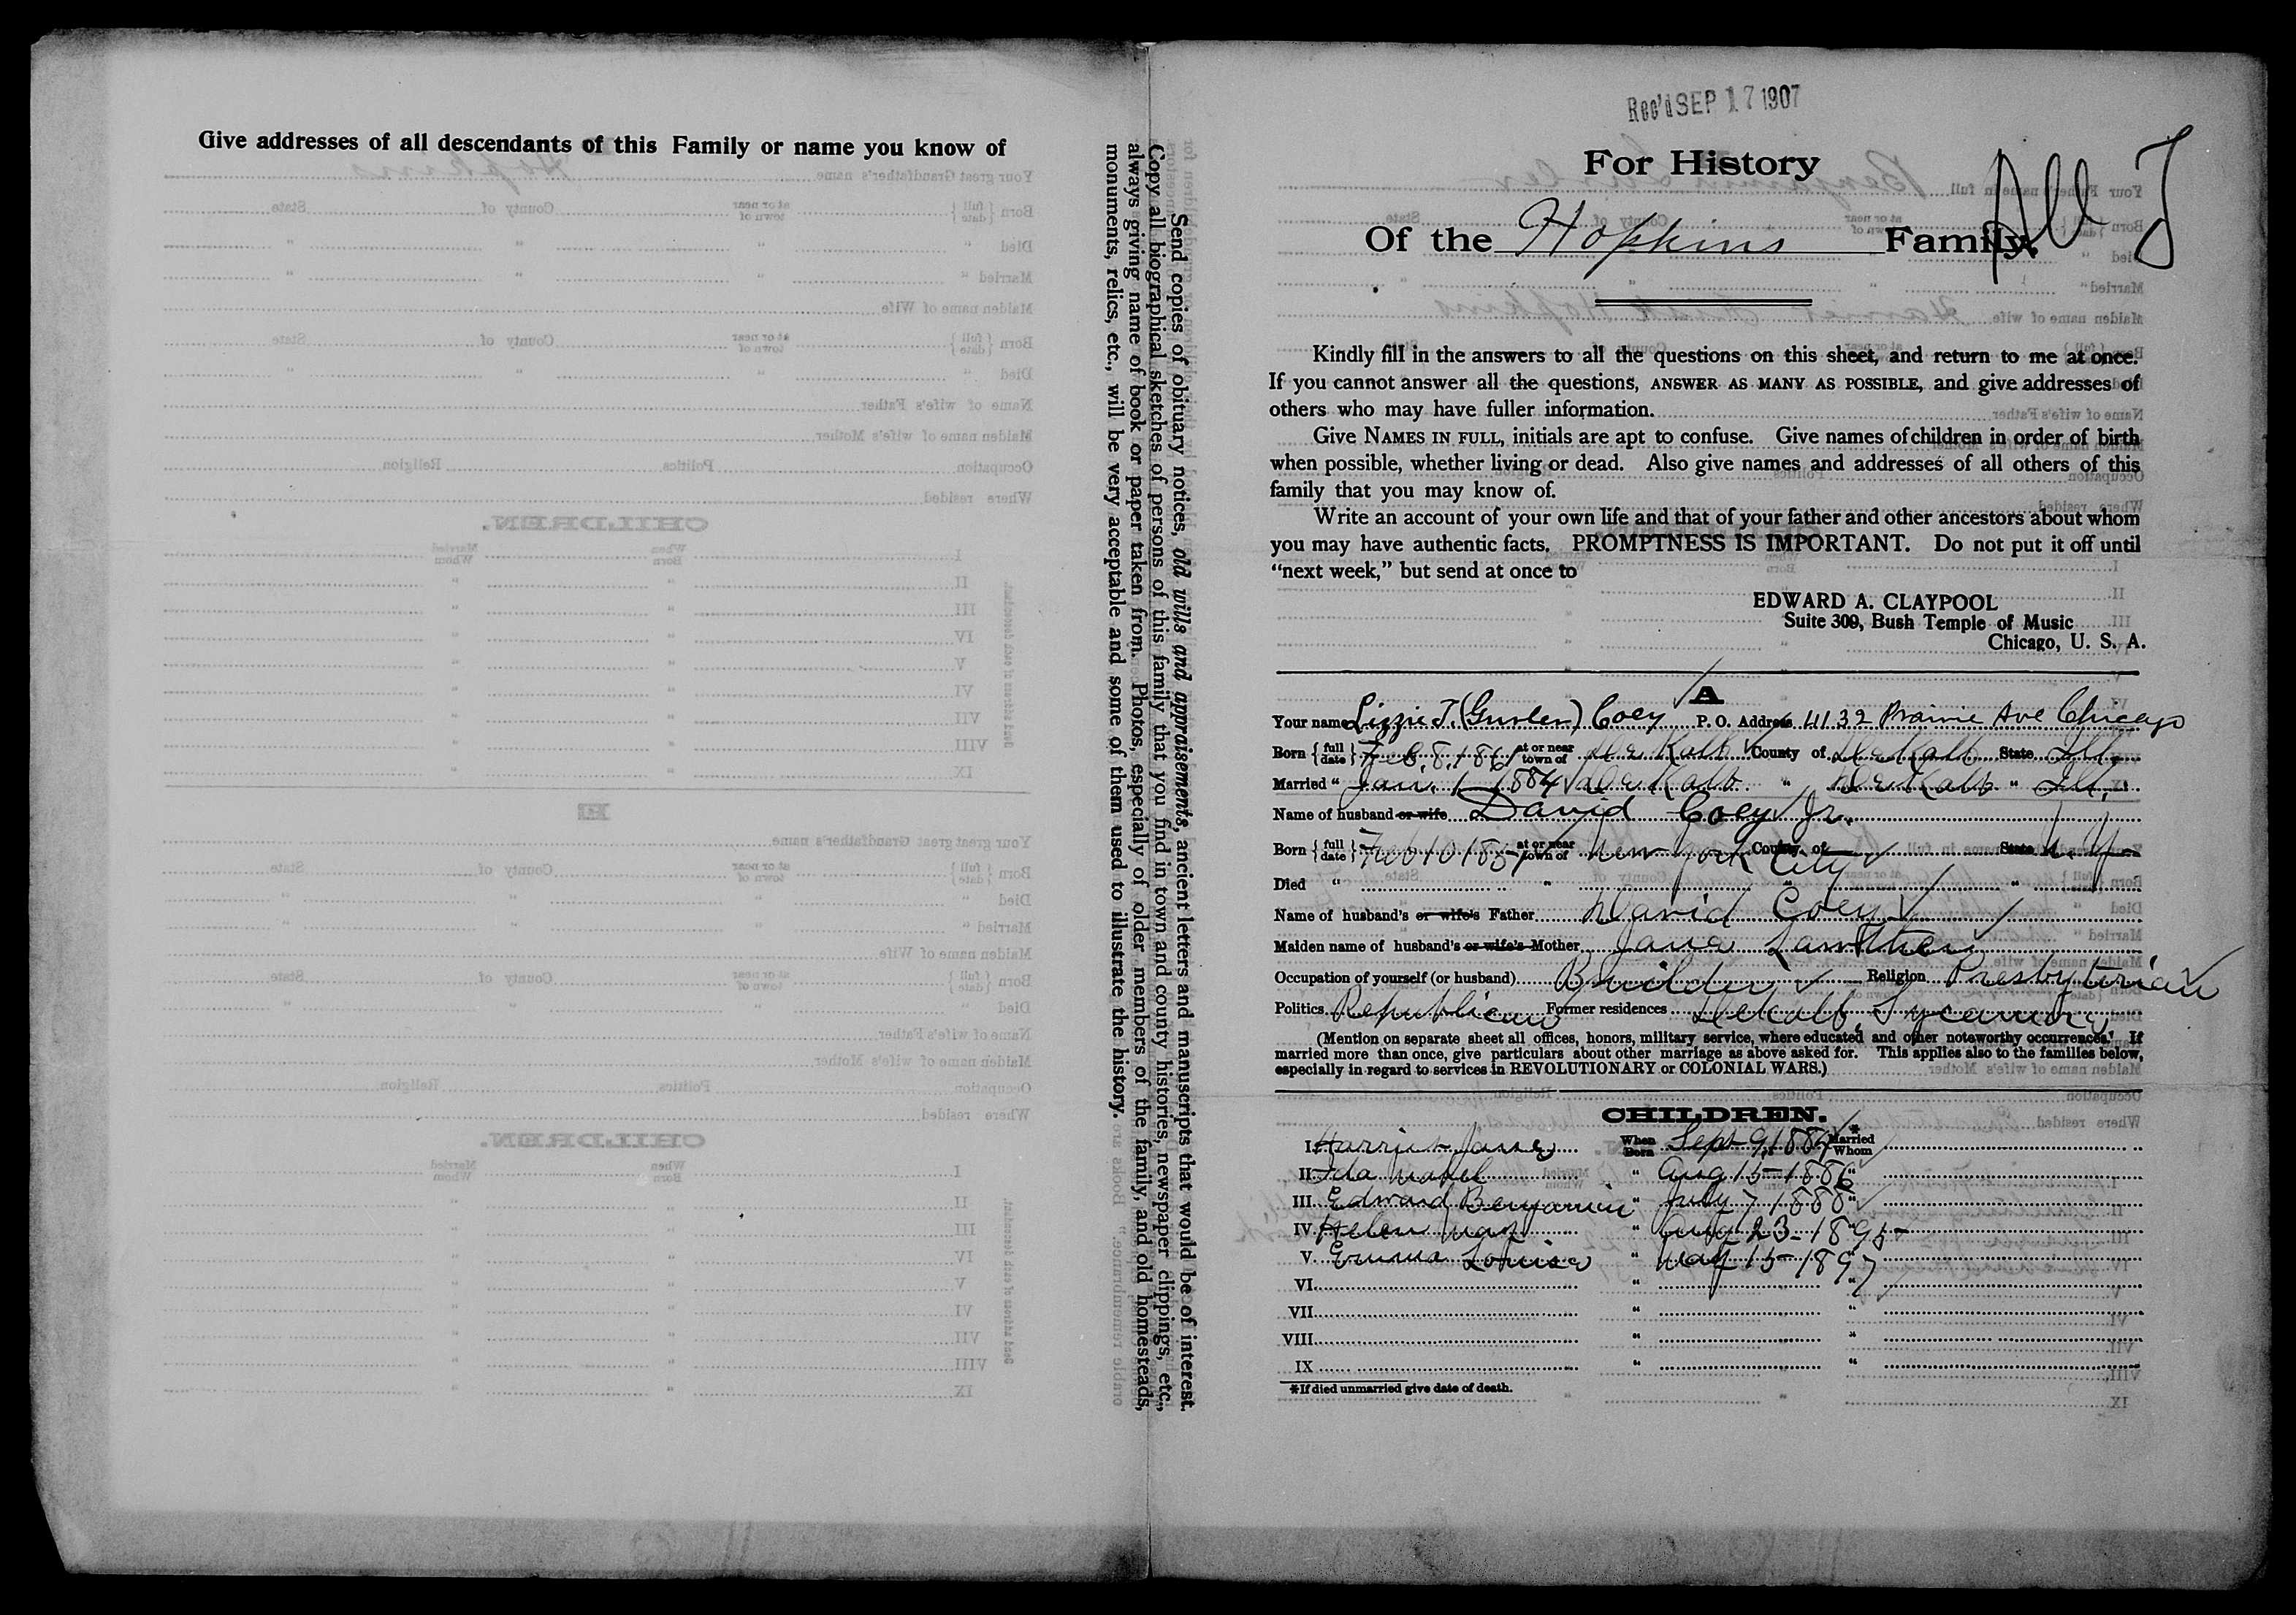 Give addresses of all descendants of this Family or name you know of
Send copies of obituary notices, old wills and appraisements, ancient letters and manuscripts that would be of interest.
Copy all biographical sketches of persons of this family that you find in town and county histories, newspaper clippings, etc.,
always giving name of book or paper taken from. Photos, especially of older members of the family, and old homesteads,
monuments, relics, etc., will be very acceptable and some of them used to illustrate the history.
Rec'd SEP 17 1907
For History
Of the Hopkins Family.
Kindly fill in the answers to all the questions on this sheet, and return to me at once.
If you cannot answer all the questions, ANSWER AS MANY AS POSSIBLE, and give addresses of
others who may have fuller information.
Give NAMES IN FULL, initials are apt to confuse. Give names of children in order of birth
when possible, whether living or dead. Also give names and addresses of all others of this
family that you may know of.
Write an account of your own life and that of your father and other ancestors about whom
you may have authentic facts. PROMPTNESS IS IMPORTANT. Do not put it off until
"next week," but send at once to
EDWARD A. CLAYPOOL
Suite 309, Bush Temple of Music
Chicago, U. S. A.
A
Your name Lizzie J. (Gurler) Coey P. O. Address 4132 Prairie Ave Chicago
Born { full date } 8, 1861 at or near town of De Kalb County of De Kalb State Ill.
Married " Jan. 1 - 1884 De Kalb " De Kalb " Ill.
Name of husband or wife David Coey Jr.
Born { full date } Feb 10 185 at or near town of New York City County of State N. Y-
Died " " " "
Name of husband's or wife's Father David Coey
Maiden name of husband's or wife's Mother Jane
Occupation of yourself (or husband) Builder Religion Presbyterian
Politics Republican Former residences DeKalb, Sycamore
(Mention on separate sheet all offices, honors, military service, where educated and other noteworthy occurrences. If
married more than once, give particulars about other marriage as above asked for. This applies also to the families below,
especially in regard to services in REVOLUTIONARY or COLONIAL WARS.)
CHILDREN.
I. Harriet Jane When Born Sept 9, 1884 *Married Whom
II. Ida Mabel " Aug 15 - 1886 "
III. Edward Benjamin " July 7 1888 "
IV. Helen May " Aug 23 - 1895 - "
V. Emma Louise " May 15 - 1897 "
VI. " "
VII. " "
VIII. " "
IX " "
*If died unmarried give date of death.